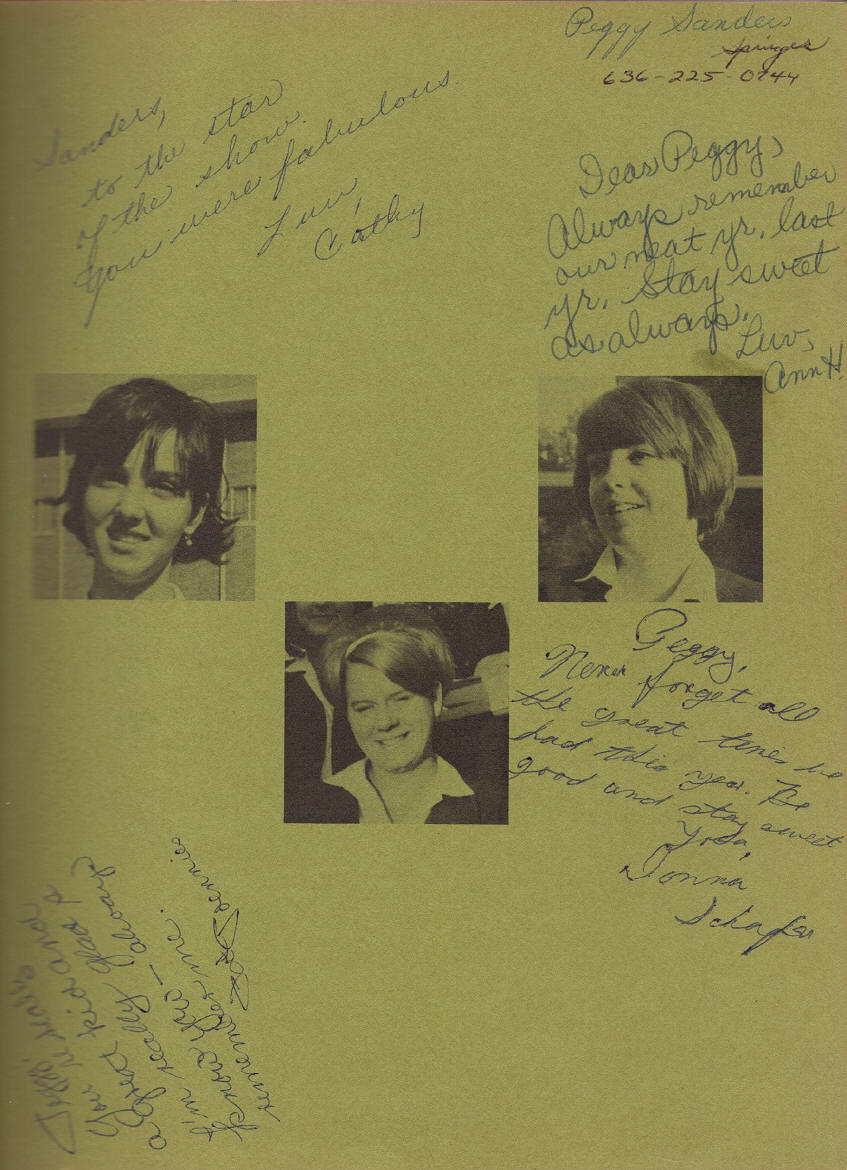 Peggy Sanders
636-225-0744
Sanders,
to the star
of the show.
You were fabulous.
Luv,
Cathy
Dear Peggy,
Always remember
our neat yr. last
yr. Stay sweet
as always.
Luv,
Ann H.
Peggy,
Never forget all
the great times we
had this year. Be
good and stay sweet
Donna
Schafer
You're really
kid and
a great
I'm really glad I
know you — always
remember me.